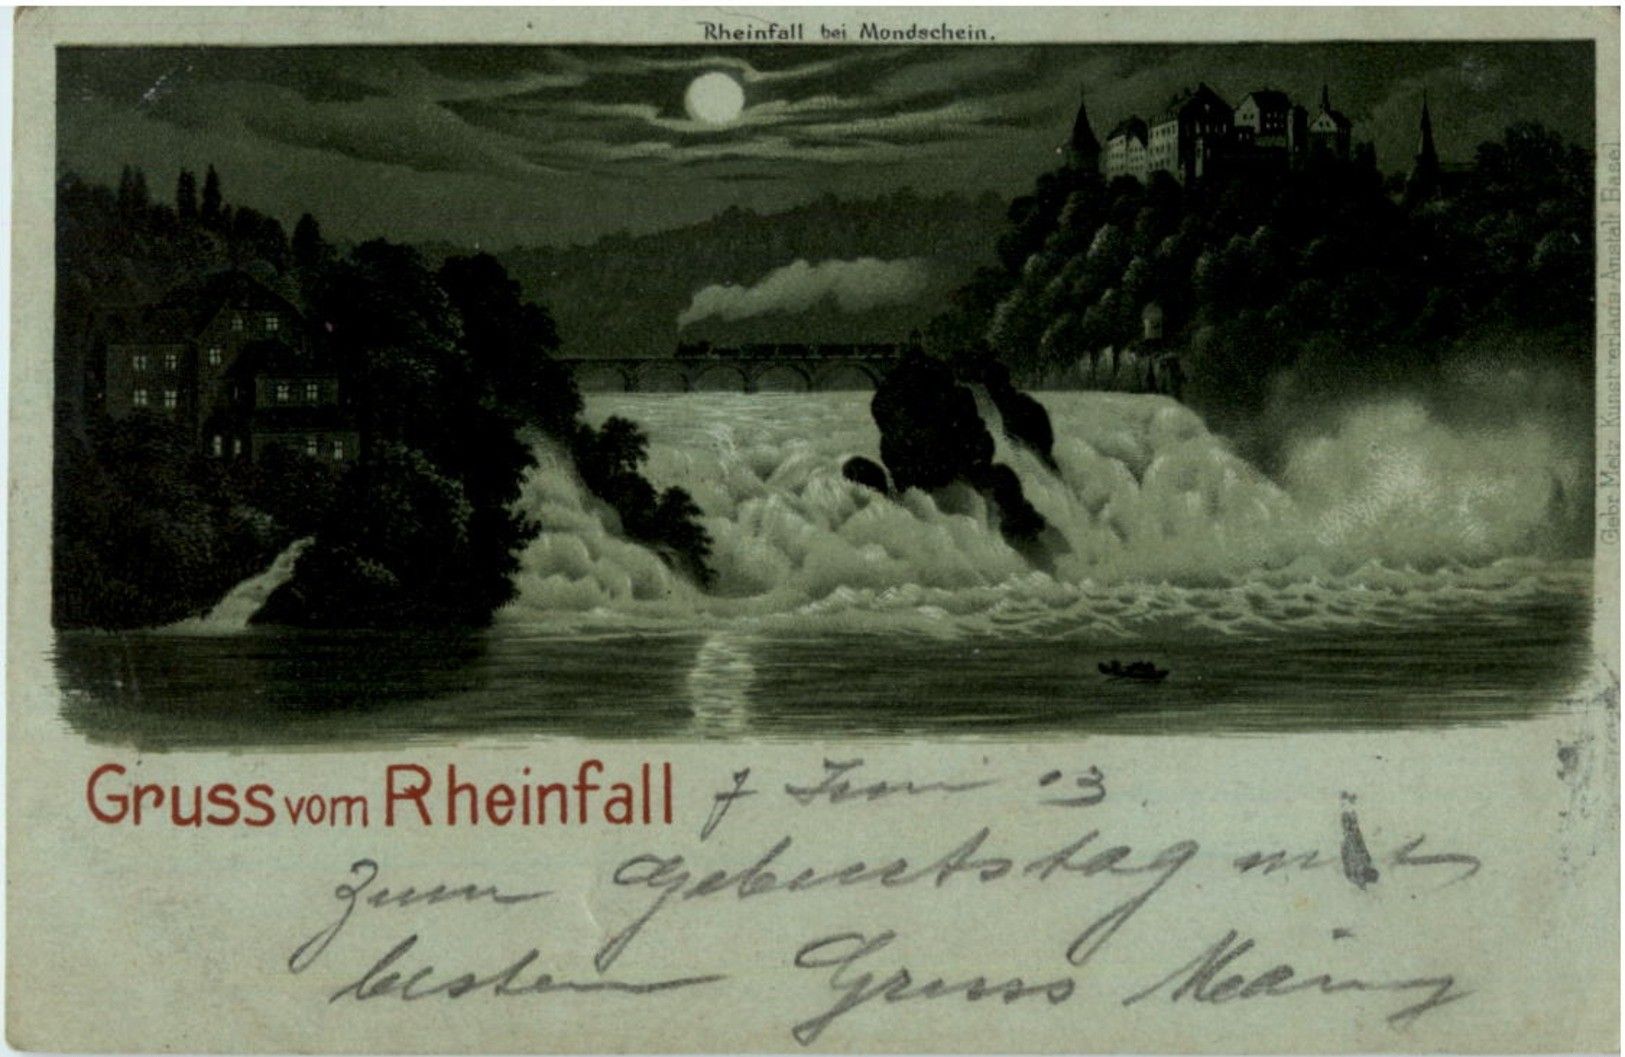 Rheinfall bei Mondschein.
Gebr. Metz Kunstverlags-Anstalt Basel
Gruss vom Rheinfall
7 Juni 03
Zum Geburtstag mit
besten Gruss